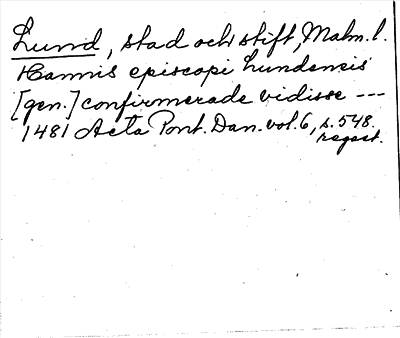 Lund, stad och stift, Malm. l.
Hannis episcopi Lundensis
[gen.] confirmerade vidisse ---
1481 Acta Pont. Dan. vol. 6, s. 548.
regest.